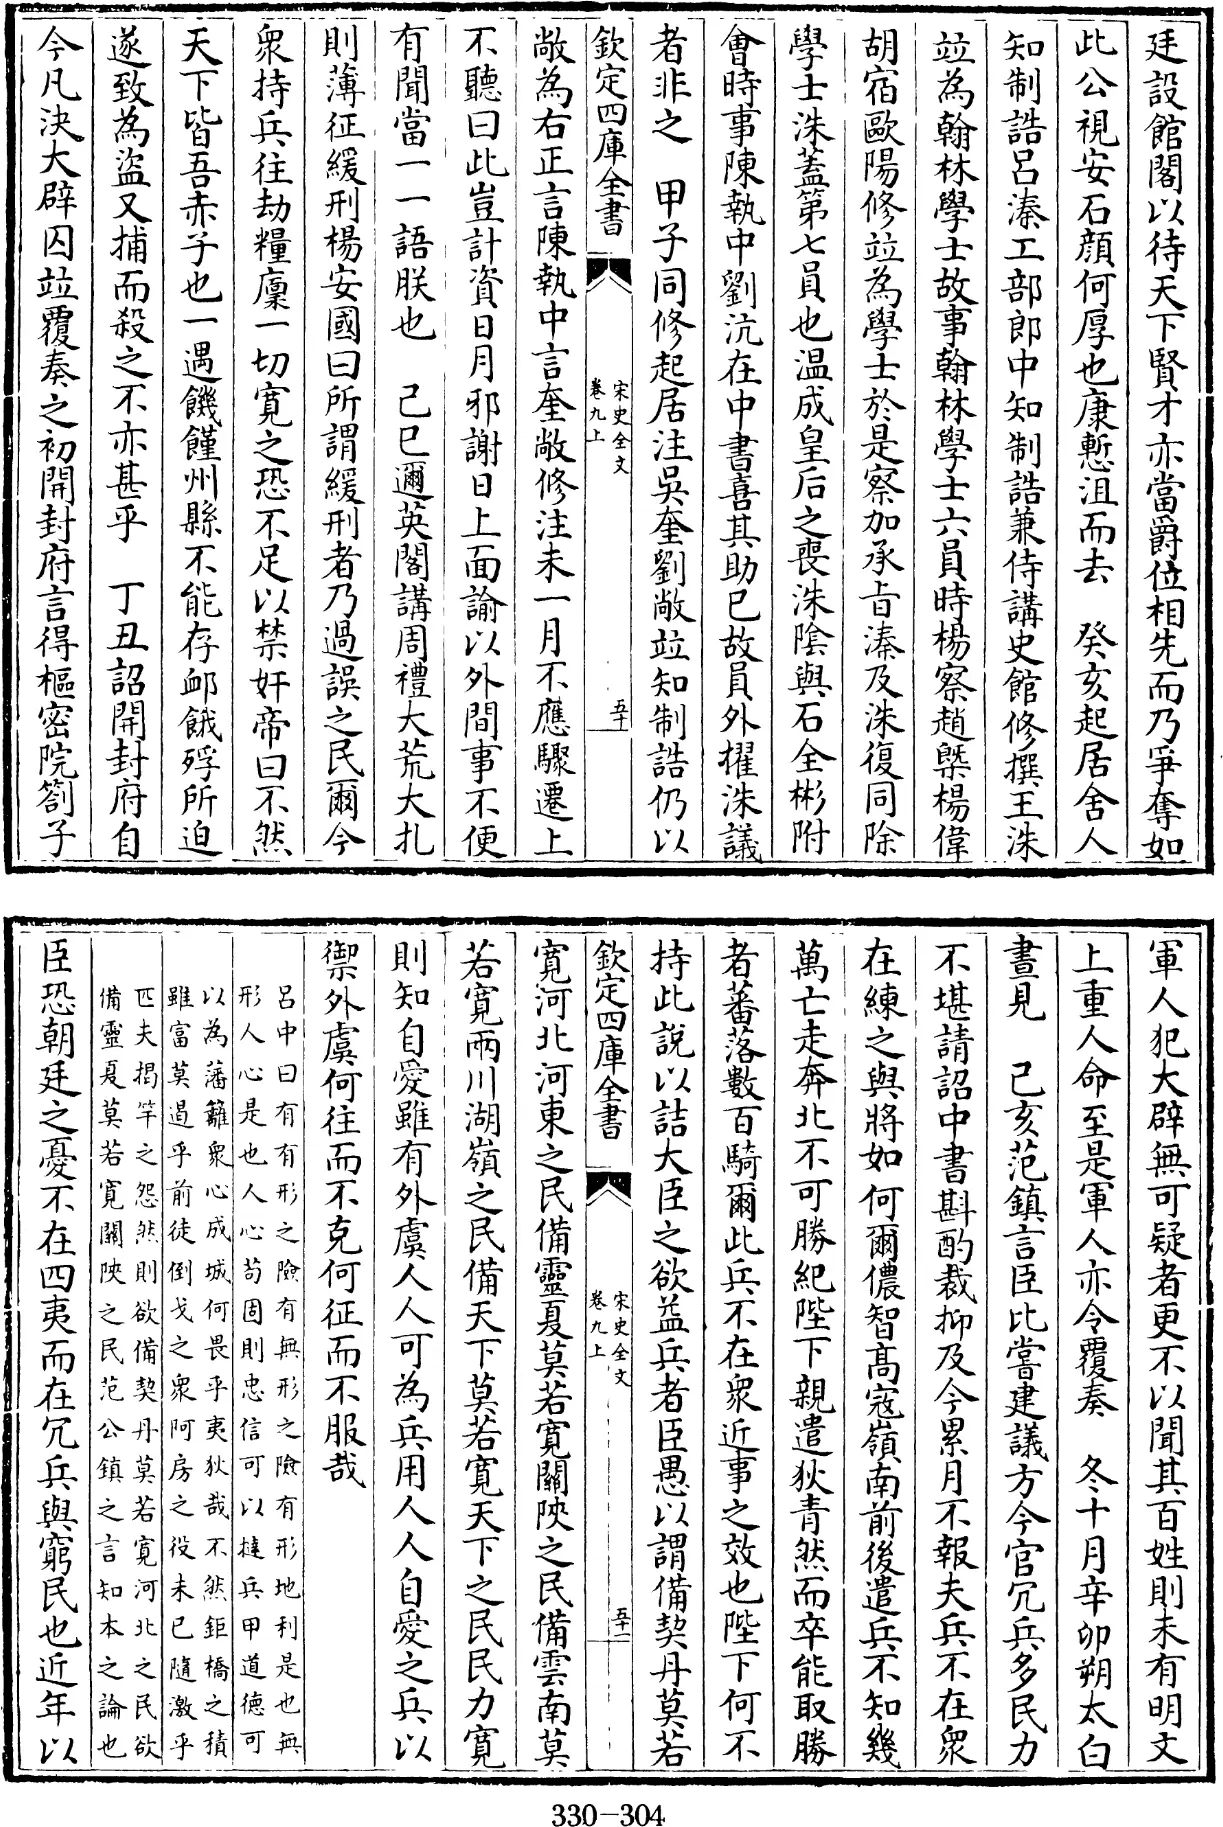 廷設館閣以待天下賢才亦當爵位相先而乃爭奪如
此公視安石顔何厚也康慙沮而去　癸亥起居舎人
知制誥呂溱工部郎中知制誥兼侍講史館修撰王洙
竝為翰林學士故事翰林學士六員時楊察趙槩楊偉
胡宿歐陽修竝為學士於是察加承旨溱及洙復同除
學士洙蓋第七員也温成皇后之喪洙隂與石全彬附
會時事陳執中劉沆在中書喜其助已故員外擢洙議
者非之　甲子同修起居注吳奎劉敞竝知制誥仍以
欽定四庫全書
宋史全文
卷九上
五十
敞為右正言陳執中言奎敞修注未一月不應驟遷上
不聽曰此豈計資日月邪謝日上面諭以外間事不便
有聞當一一語朕也　己巳邇英閣講周禮大荒大札
則薄征緩刑楊安國曰所謂緩刑者乃過誤之民爾今
衆持兵往劫糧廩一切寛之恐不足以禁奸帝曰不然
天下皆吾赤子也一遇饑饉州縣不能存䘏餓殍所迫
遂致為盜又捕而殺之不亦甚乎　丁丑詔開封府自
今凡決大辟囚竝覆奏之初開封府言得樞密院劄子
軍人犯大辟無可疑者更不以聞其百姓則未有明文
上重人命至是軍人亦令覆奏　冬十月辛卯朔太白
晝見　己亥范鎮言臣比嘗建議方今官冗兵多民力
不堪請詔中書斟酌裁抑及今累月不報夫兵不在衆
在練之與將如何爾儂智髙宼嶺南前後遣兵不知幾
萬亡走奔北不可勝紀陛下親遣狄青然而卒能取勝
者蕃落數百騎爾此兵不在衆近事之效也陛下何不
持此說以詰大臣之欲益兵者臣愚以謂備契丹莫若
欽定四庫全書
宋史全文
卷九上
五十一
寛河北河東之民備靈夏莫若寛關陜之民備雲南莫
若寛兩川湖嶺之民備天下莫若寛天下之民民力寛
則知自愛雖有外虞人人可為兵用人人自愛之兵以
禦外虞何往而不克何征而不服哉
呂中曰有有形之險有無形之險有形地利是也無
形人心是也人心苟固則忠信可以撻兵甲道德可
以為藩籬衆心成城何畏乎夷狄哉不然鉅橋之積
雖富莫遏乎前徒倒戈之衆阿房之役未已隨激乎
匹夫揭竿之怨然則欲備契丹莫若寛河北之民欲
備靈夏莫若寛關陜之民范公鎮之言知本之論也
臣恐朝廷之憂不在四夷而在冗兵與窮民也近年以
330-304